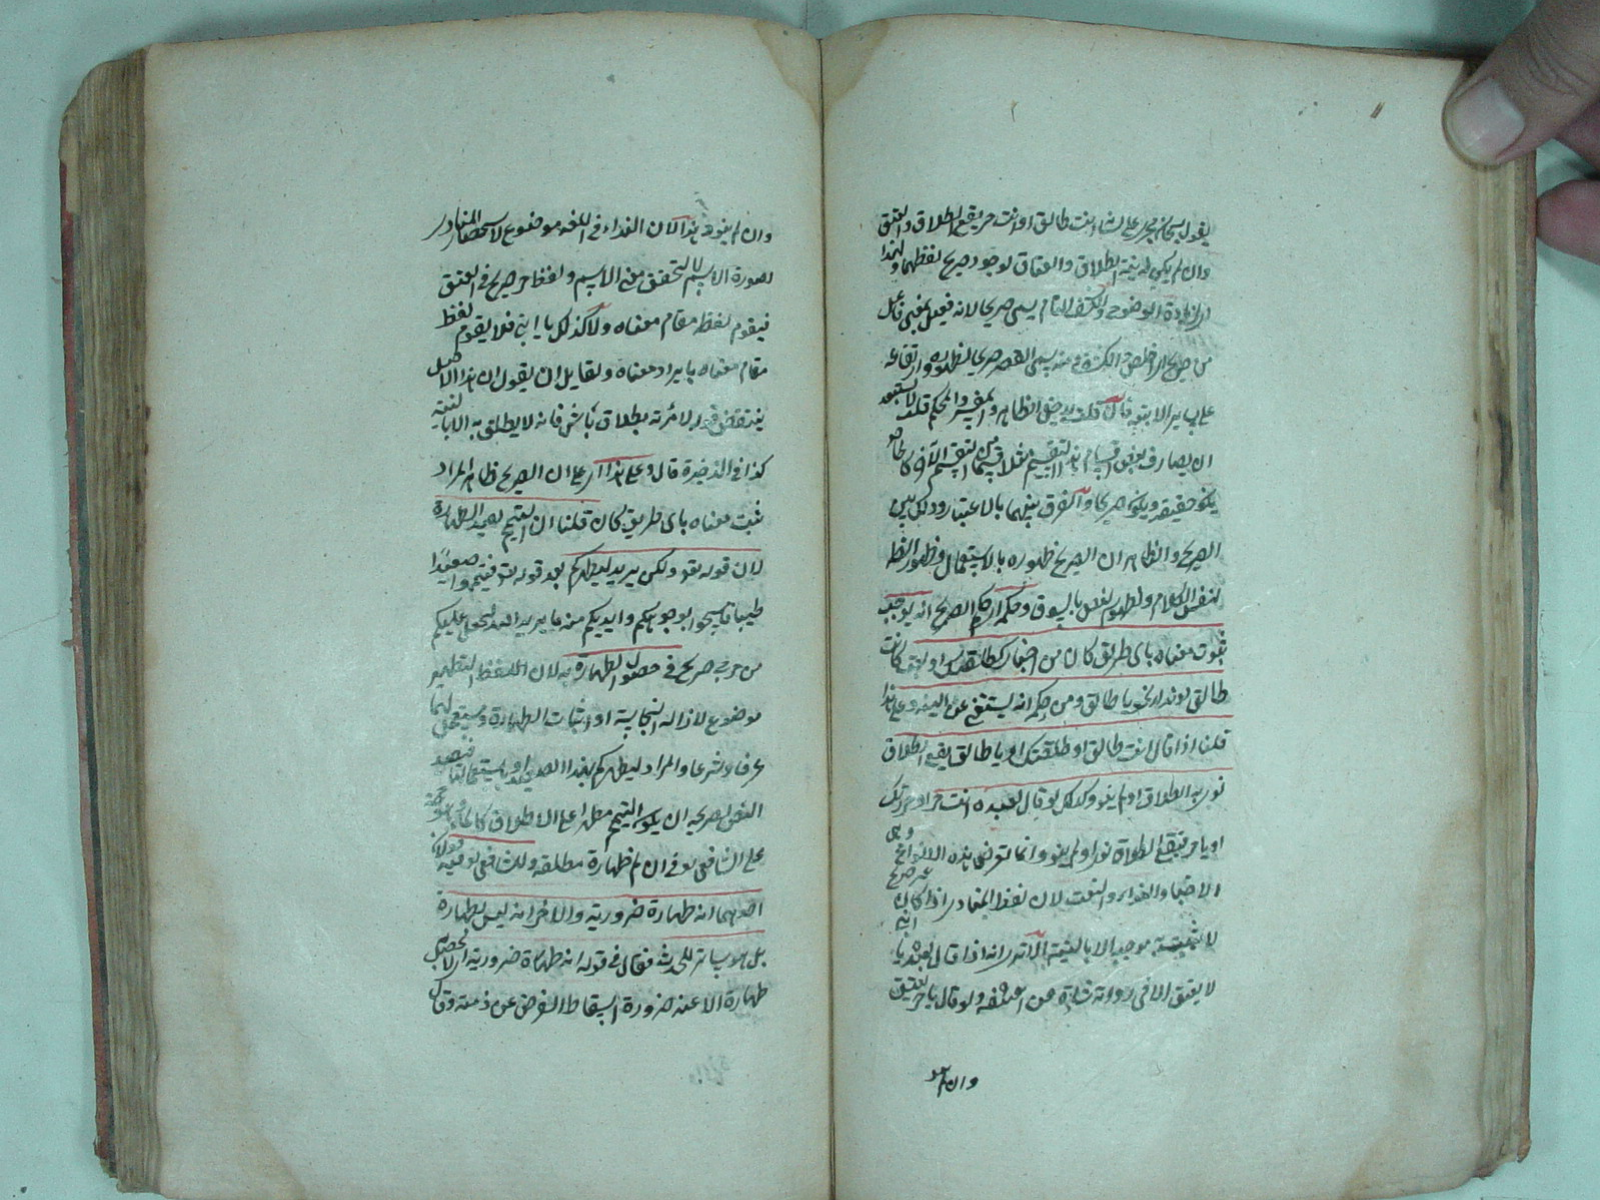 يقول سبحان فجرى على لسانه انت طالق او انت حر يقع الطلاق والعتق
وان لم يكن له نية الطلاق والعتاق لوجود صريح لفظهما ولهذا
لزيادة الوضوح والكشف التام يسمى صريحا لانه فعيل بمعنى فاعل
من صرح اذا خلص وانكشف ومنه يسمى القصر صريحا لظهوره وارتفاعه
على سائر الابنية فان قلت يدخل الظاهر والمفسر والمحكم قلت لا يستبعد
ان يصادف بعض اقسام هذا التقسيم مثلا قسما من التقسيم الآخر كالخاص
يكون حقيقة ويكون صريحا والفرق بينهما بالاعتبار وذلك بين
الصريح والظاهر ان الصريح ظهوره بالاستعمال وظهور الظاهر
بنفس الكلام وظهور النص بالسوق وحكمه اى حكم الصريح انه يوجب
ثبوت معناه باى طريق كان من اخبار كطلقتك او نعت كانت
طالق او نداء نحو يا طالق ومن حكمه انه يستغنى عن النية وعلى هذا
قلنا اذا قال انت طالق او طلقتك او يا طالق يقع الطلاق
نوى به الطلاق او لم ينو وكذلك لو قال لعبده انت حر او حررتك
او يا حر فيقع الطلاق نوى او لم ينو وانما تعرض بهذه الانواع وهى
الاخبار والنداء والنعت لان لفظ المنادى اذا كان غير صريح
لا يثبت موجبه الا بالنية الا ترى انه اذا قال لعبده يا ابنى
لا يعتق الا فى رواية شاذة عن ابى حنيفة ولو قال يا حر يعتق
وان لم
وان لم ينو هذا لان النداء فى اللغة موضوع لاستحضار المنادى
لصورة الاسم لا لتحقق معنى الاسم ولفظ حر صريح فى العتق
فيقوم لفظه مقام معناه ولا كذلك يا ابنى فلا يقوم لفظه
مقام معناه بل يراد معناه ولقايل ان يقول ان هذا الاصل
ينتقض بقوله لامرئته بطلاق باش فانه لا يطلق به الا بالنية
كذا فى الذخيرة قال وعلى هذا اى على ان الصريح ظاهر المراد
ثبت معناه باى طريق كان قلنا ان التيمم يفيد الطهارة
لان قوله تعالى ولكن يريد ليطهركم بعد قوله تعالى فتيمموا صعيدا
طيبا فامسحوا بوجوهكم وايديكم منه ما يريد الله ليجعل عليكم
من حرج صريح فى حصول الطهارة به لان اللفظ التطهير
موضوع لازالة النجاسة او اثبات الطهارة ويستعمل لهما
عرفا وشرعا والمراد ليطهركم بهذا الصعيد او باستعمالنا فيصير
النص بصريحه ان يكون التيمم مطهرا على الاطلاق كالماء وهو حجة
على الشافعى فى ان لم طهارة مطلقة وللشافعى فيه قولان
احدهما انه طهارة ضرورية والاخر انه ليس بطهارة
بل هو ساتر للحدث فقال فى قوله انه طهارة ضرورية اى لا يحصل
طهارة الا عند ضرورة اسقاط الفرض عن ذمته وقال